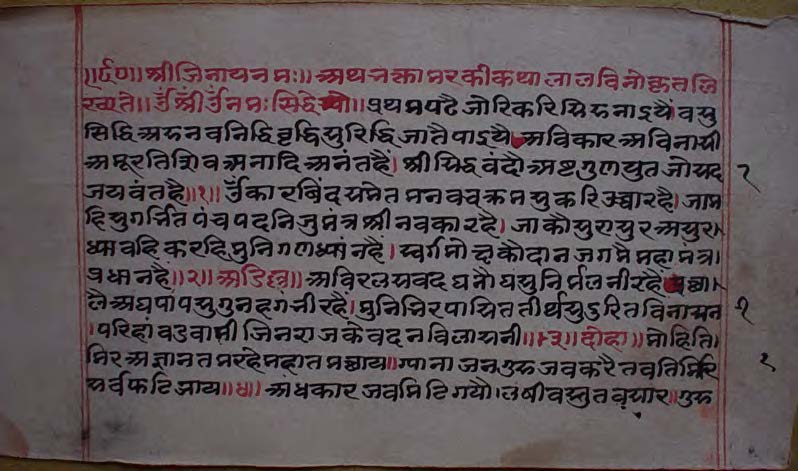 ॥र्द०॥ श्रीजिनायनमः॥ अथ भक्तामरकीकथा लालविनोदकृत लि
ख्यते॥ ॐ श्रीॐनमः सिद्धेभ्यो॥ प्रथमपढै जोरिकरि सिद्धनाइयैं वसु
सिद्धि अरु नवनिद्धि वृद्धि सुरिद्धि जातै पाइयै। अविकार अविनासी
अमूरति शिव अनादि अनंतहै। श्रीसिद्ध वंदौ अष्टगुणयुत जोसद २
जयवंतहै॥१॥ ॐकार बिंद समेत मनवचक्रमसु करि उच्चारहै। जाम
हिसुगर्भित पंचपद निजुमंत्र श्रीनवकारहै। जाकौ सुरासुर असुरा
ध्यावहि करहि मुनिगणध्यांनहैं। स्वर्गमोक्षकौ दान जगमै महामंत्रा
प्रधानहैं॥२॥ अडिल्ल॥ अविरलसवद घनौघसु निर्मल नीरहै।
लै अघपांप सुगुनहगंभीरहै। मुनिभिरपासित तीर्थसु दुरितविनासन १
परिहां वउवाणी जिनराजके वदनविलासनी॥३॥ दोहा॥ मोहिति
मिर अज्ञानतम रहे महातमछाय॥ ग्याना जनगुरु जव करै तव तिमिर १
सर्व फटि जाय॥४॥ अंधकार जव मिटि गयौ। लषी वस्तु तव सार॥ गुरु